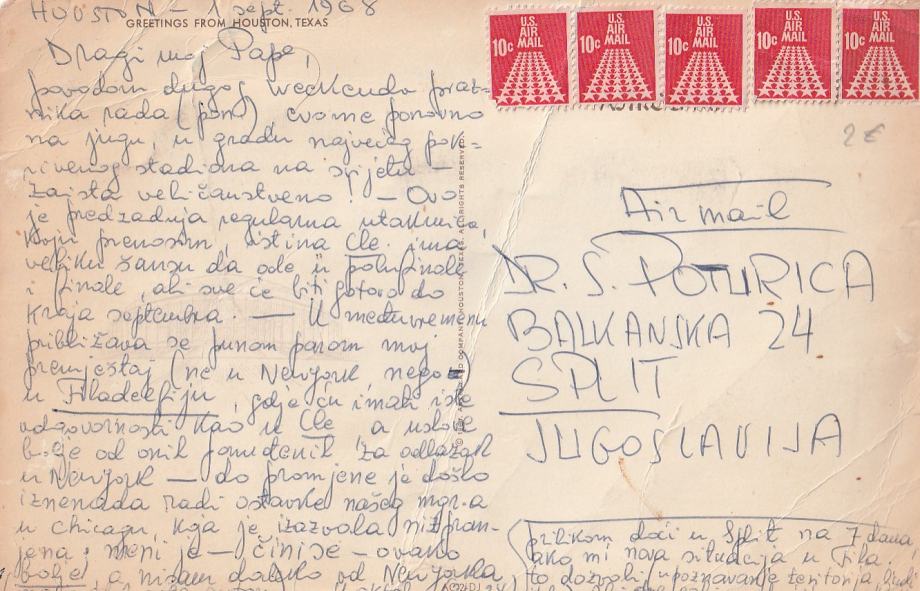 HOUSTON - 1 sept. 1968
GREETINGS FROM HOUSTON, TEXAS
Dragi moj Pape,
povodom dugog weekenda praz-
nika rada (pon) evo me ponovno
na jugu, u gradu najvećeg pok-
rivenog stadiona na svijetu -
zaista veličanstveno! - Ovo
je predzadnja regularna utakmica,
koju prenosim, istina Cle. ima
veliku šansu da ode u polufinale
i finale, ali sve će biti gotovo do
kraja septembra. - U međuvremenu
približava se punom parom moj
premještaj (ne u Newyork, nego
u Filadelfiju, gdje ću imati iste
odgovornosti kao u Cle, a uslove
bolje od onih ponuđenih za odlazak
u Newyork - do promjene je došlo
iznenada radi ostavke našeg mgr.a
u Chicagu, koja je izazvala niz prom-
jena; meni je - čini se - ovako
bolje, a nisam daleko od Newyorka
ALL RIGHTS RESERVED.
U.S. AIR MAIL 10c
U.S. AIR MAIL 10c
U.S. AIR MAIL 10c
U.S. AIR MAIL 10c
U.S. AIR MAIL 10c
2 €
Air mail
DR. S. POTURICA
BALKANSKA 24
SPLIT
JUGOSLAVIJA
prilikom doći u Split na 7 dana
ako mi nova situacija u Fila.
to dozvoli, upoznavanje teritorija, ljudi